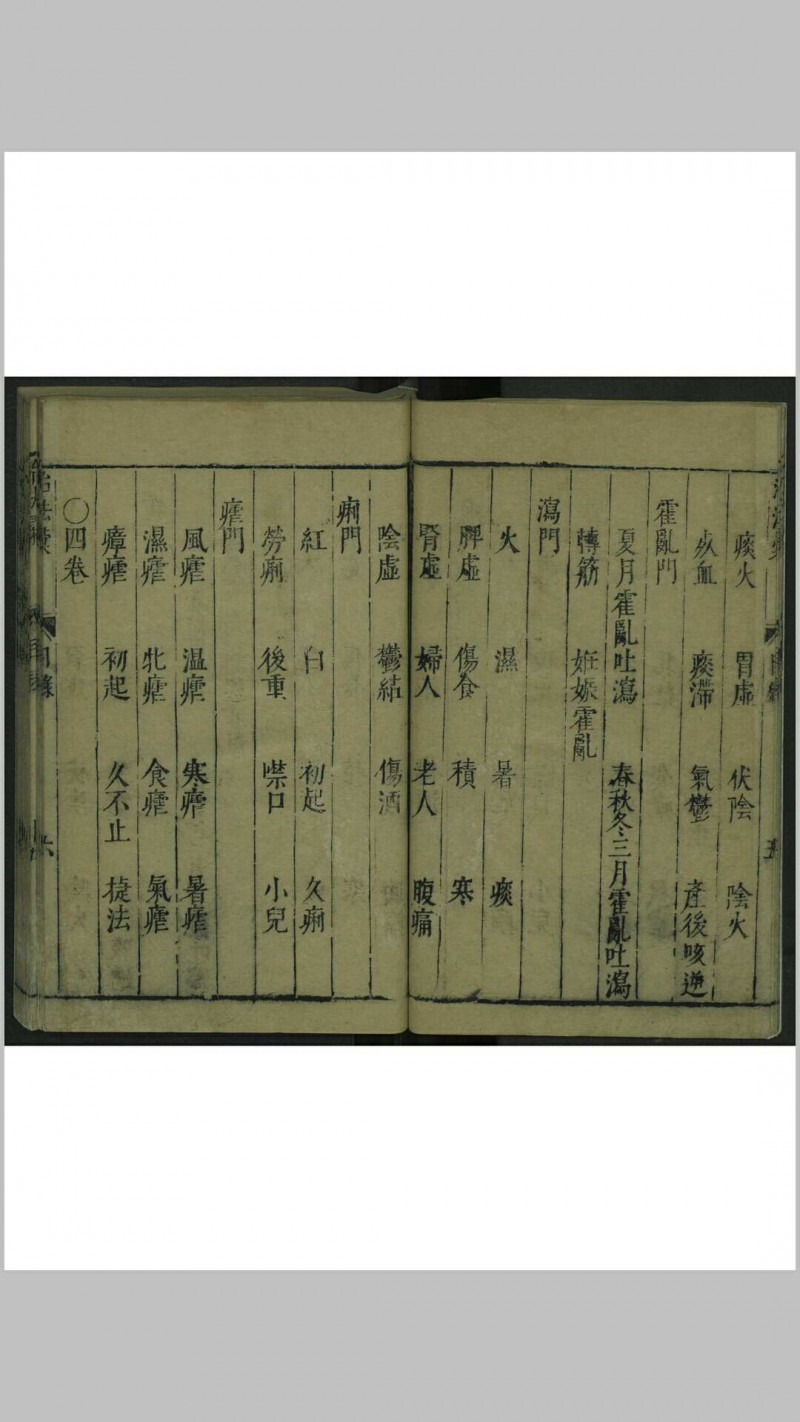 痰火 胃虛 伏陰 陰火
瘀血 痰滯 氣鬱 產後咳逆
霍亂門
夏月霍亂吐瀉 春秋冬三月霍亂吐瀉
轉筋 姙娠霍亂
瀉門
火 濕 暑 痰
脾虛 傷食 積 寒
腎虛 婦人 老人 腹痛
陰虛 鬱結 傷酒
痢門
紅 白 初起 久痢
勞痢 後重 噤口 小兒
瘧門
風瘧 溫瘧 寒瘧 暑瘧
濕瘧 牝瘧 食瘧 氣瘧
瘴瘧 初起 久不止 捷法
〇四卷
目錄
六